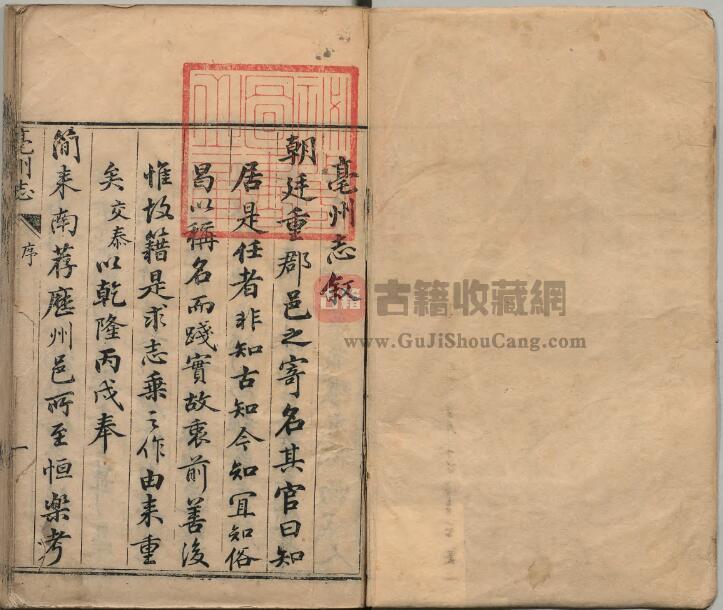 亳州志叙
朝廷重郡邑之寄名其官曰知
居是任者非知古知今知宜知俗
曷以稱名而踐實故衷前善後
惟故籍是求志乘之作由来重
矣交泰以乾隆丙戌奉
簡来南荐歷州邑所至恒樂考
亳州志
序
一
古籍收藏網
www.GuJiShouCang.com